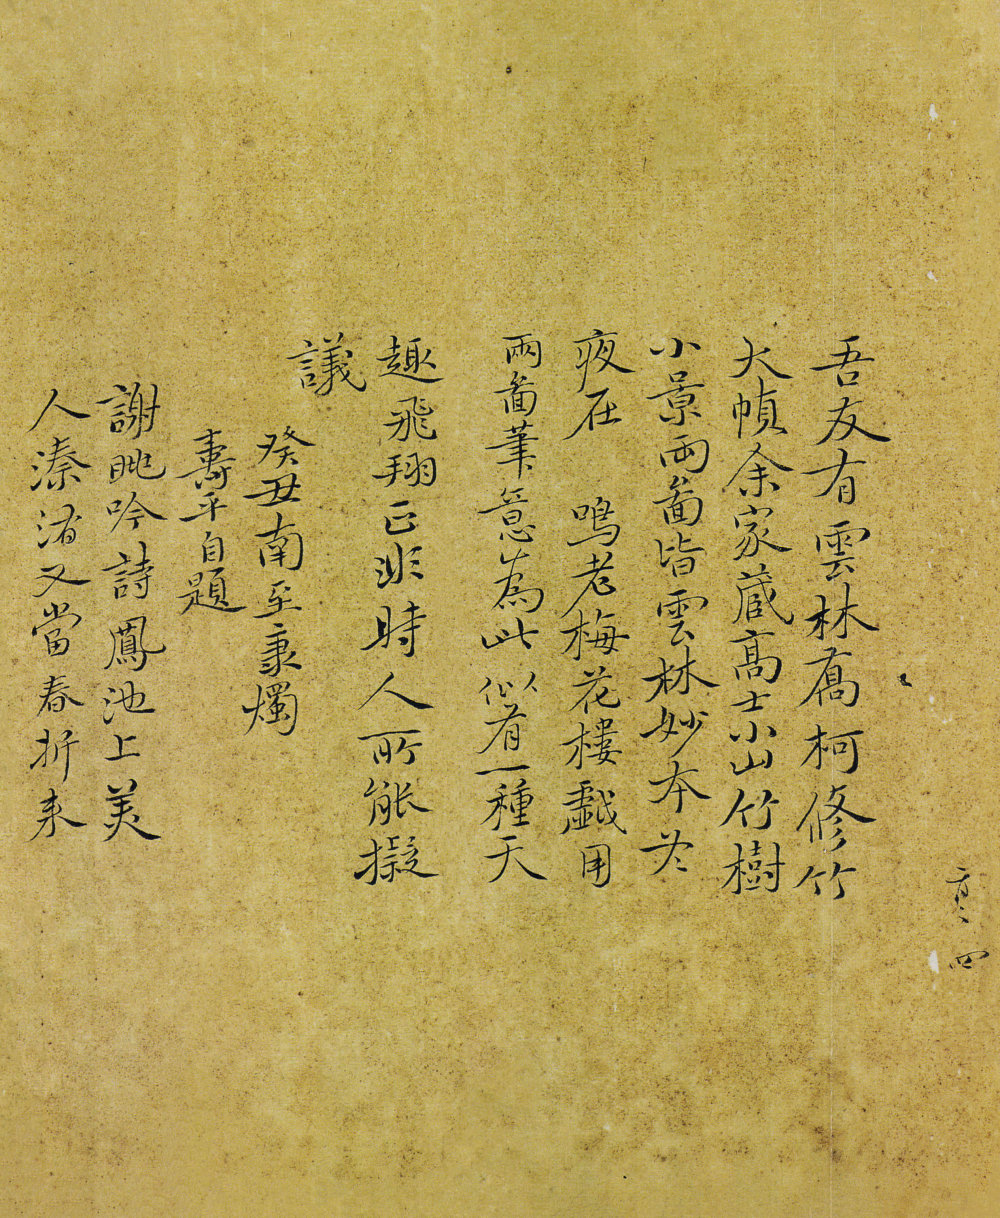 吾友有雲林喬柯修竹
大幀余家藏高士小山竹樹
小景兩啚皆雲林妙本冬
夜在鳴老梅花樓戲用
兩啚筆意為此似有一種天
趣飛翔正非時人所能擬
議
癸丑南至秉燭
壽平自題
謝眺吟詩鳳池上美
人溱洧又當春折来